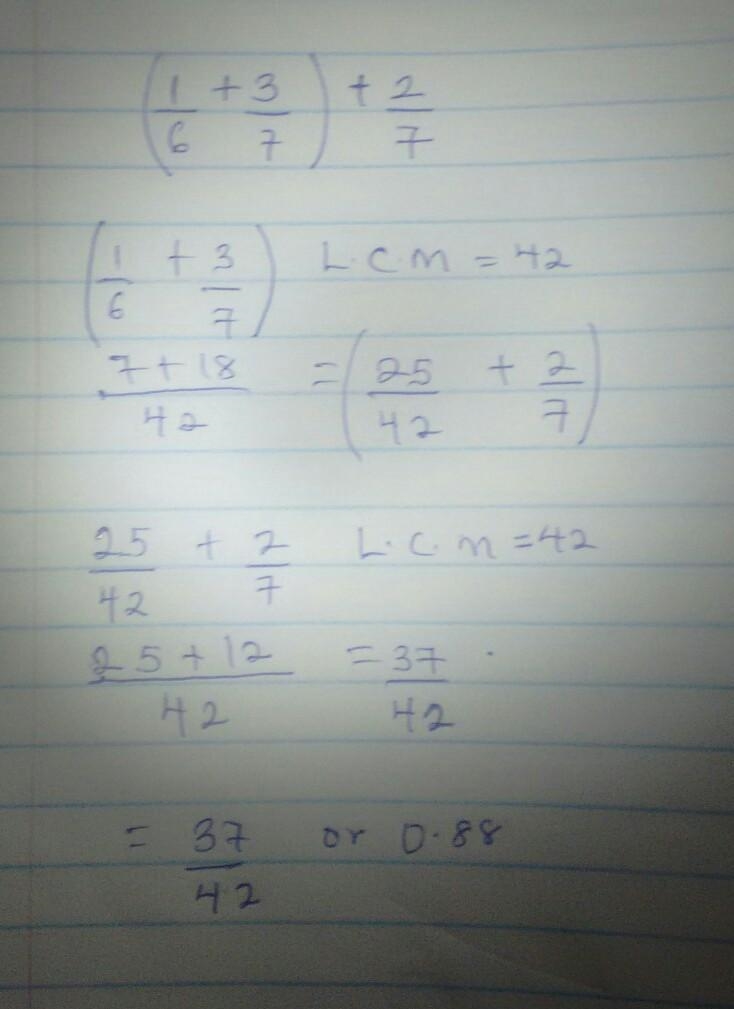 (1/6 + 3/7) + 2/7
(1/6 + 3/7) L.C.M = 42
7+18/42 = (25/42 + 2/7)
25/42 + 2/7 L.C.M = 42
25+12/42 = 37/42.
= 37/42 or 0.88